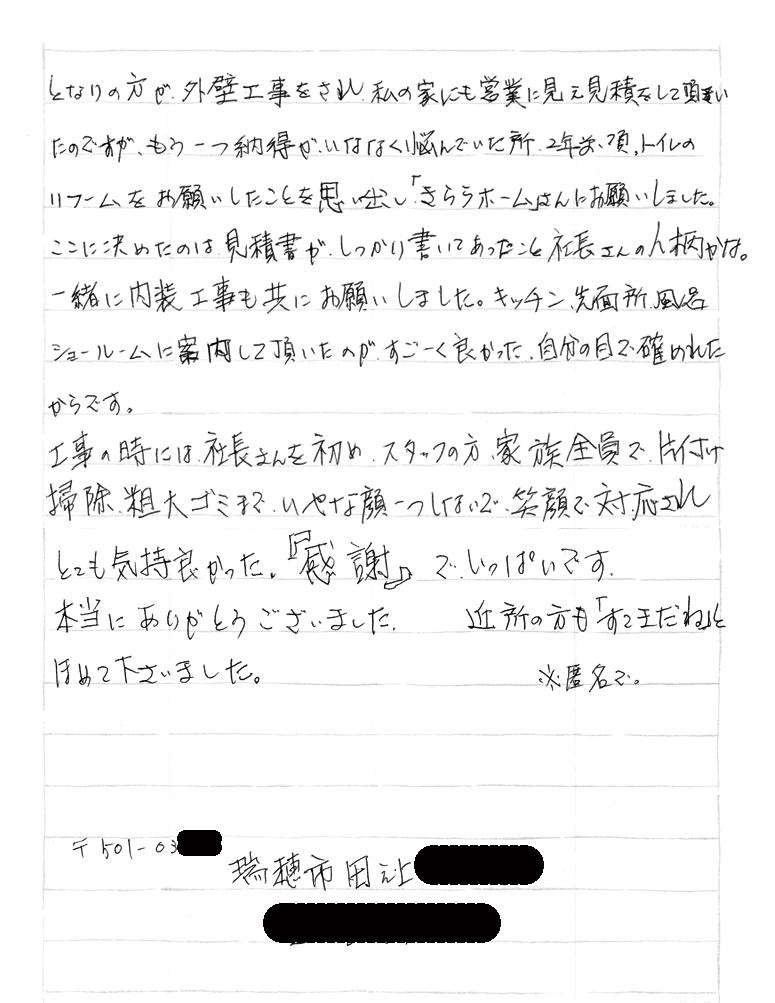 となりの方が、外壁工事をされ、私の家にも営業に見え見積をして頂い
たのですが、もう一つ納得がいななく悩んでいた所、2年前頃、トイレの
リフームをお願いしたことを思い出し「きららホーム」さんにお願いしました。
ここに決めたのは、見積書が、しっかり書いてあったこと 社長さんの人柄かな。
一緒に内装工事も共にお願いしました。キッチン、洗面所、風呂
ショールームに案内して頂いたのが、すごーく良かった、自分の目で確めれた
からです。
工事の時には、社長さんを初め、スタッフの方、家族全員で、片付け
掃除、粗大ゴミまで、いやな顔一つしないで、笑顔で対応され
とても気持良かった。『感謝』で、いっぱいです。
本当にありがとうございました。 近所の方も「すてきだね」と
ほめて下さいました。
※匿名で。
〒501-03
瑞穂市用